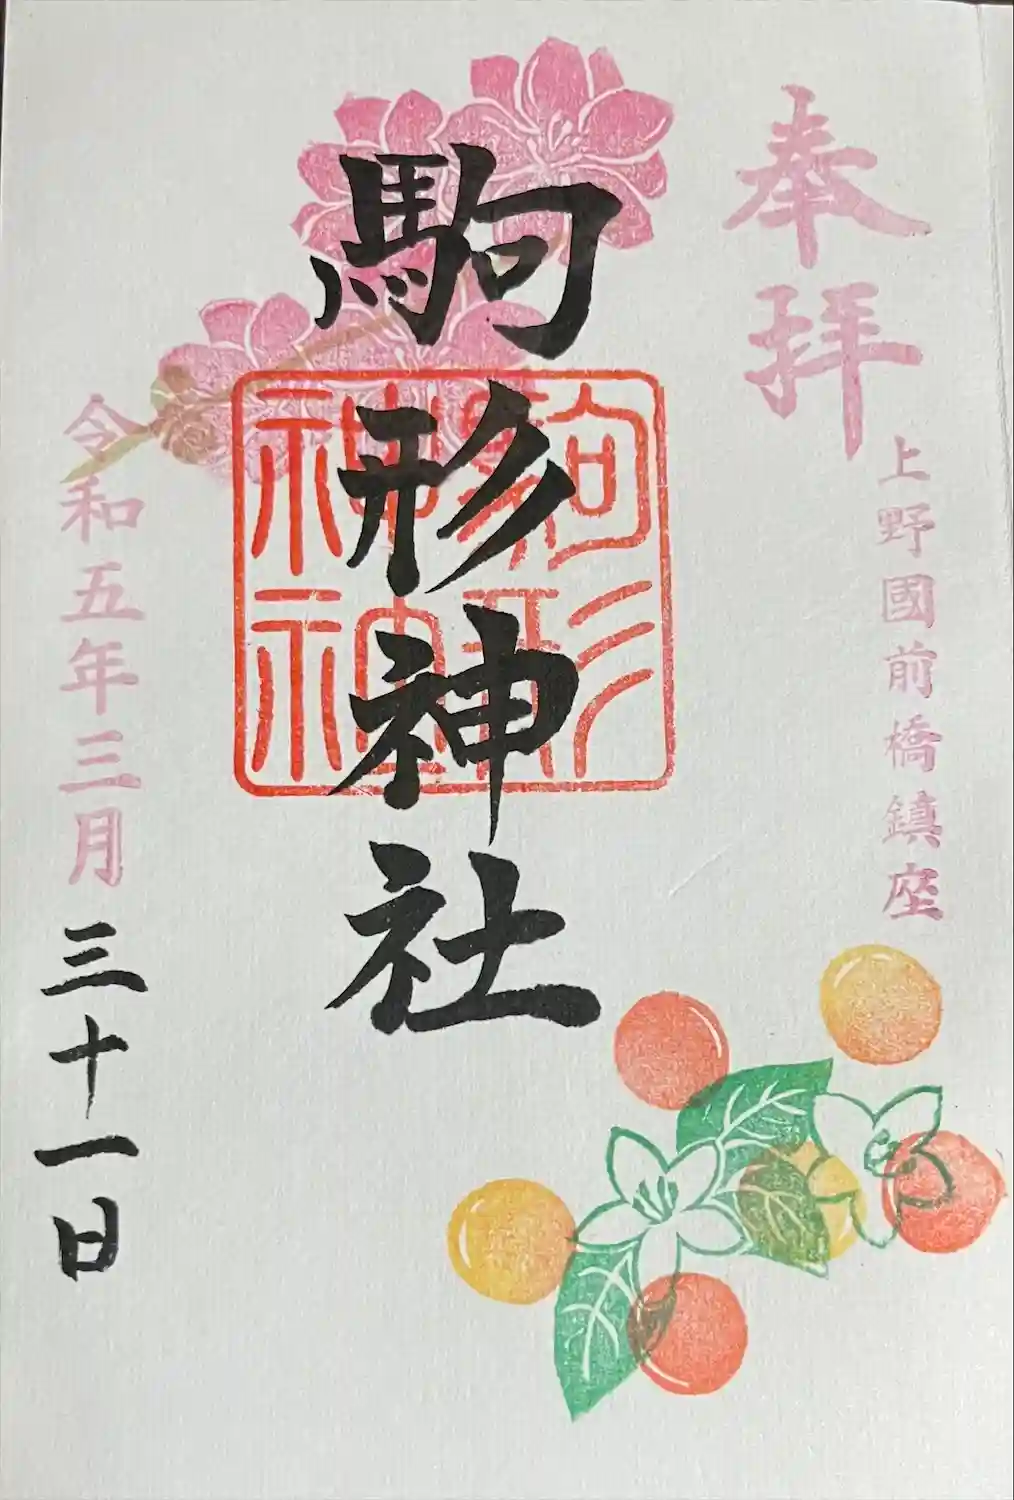 奉拝
上野國前橋鎮座
駒形神社
駒形
神社
令和五年三月三十一日